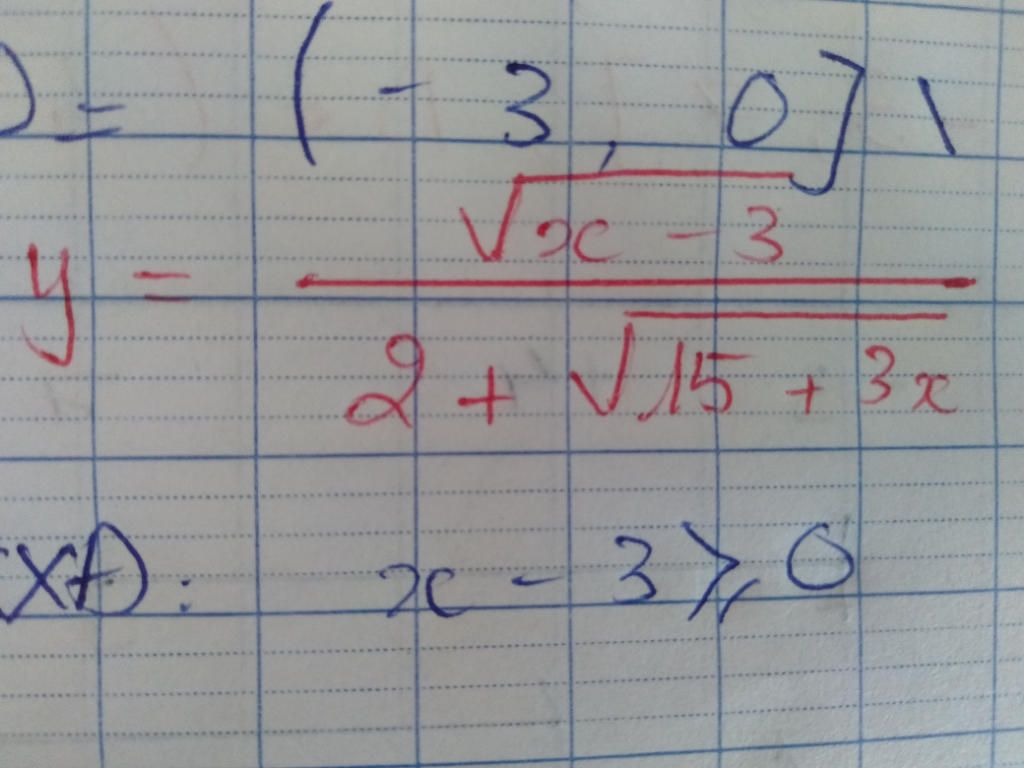 ) = (- 3, 0] \
y = \frac{\sqrt{x - 3}}{2 + \sqrt{15 + 3x}}
x - 3 ⩾ 0